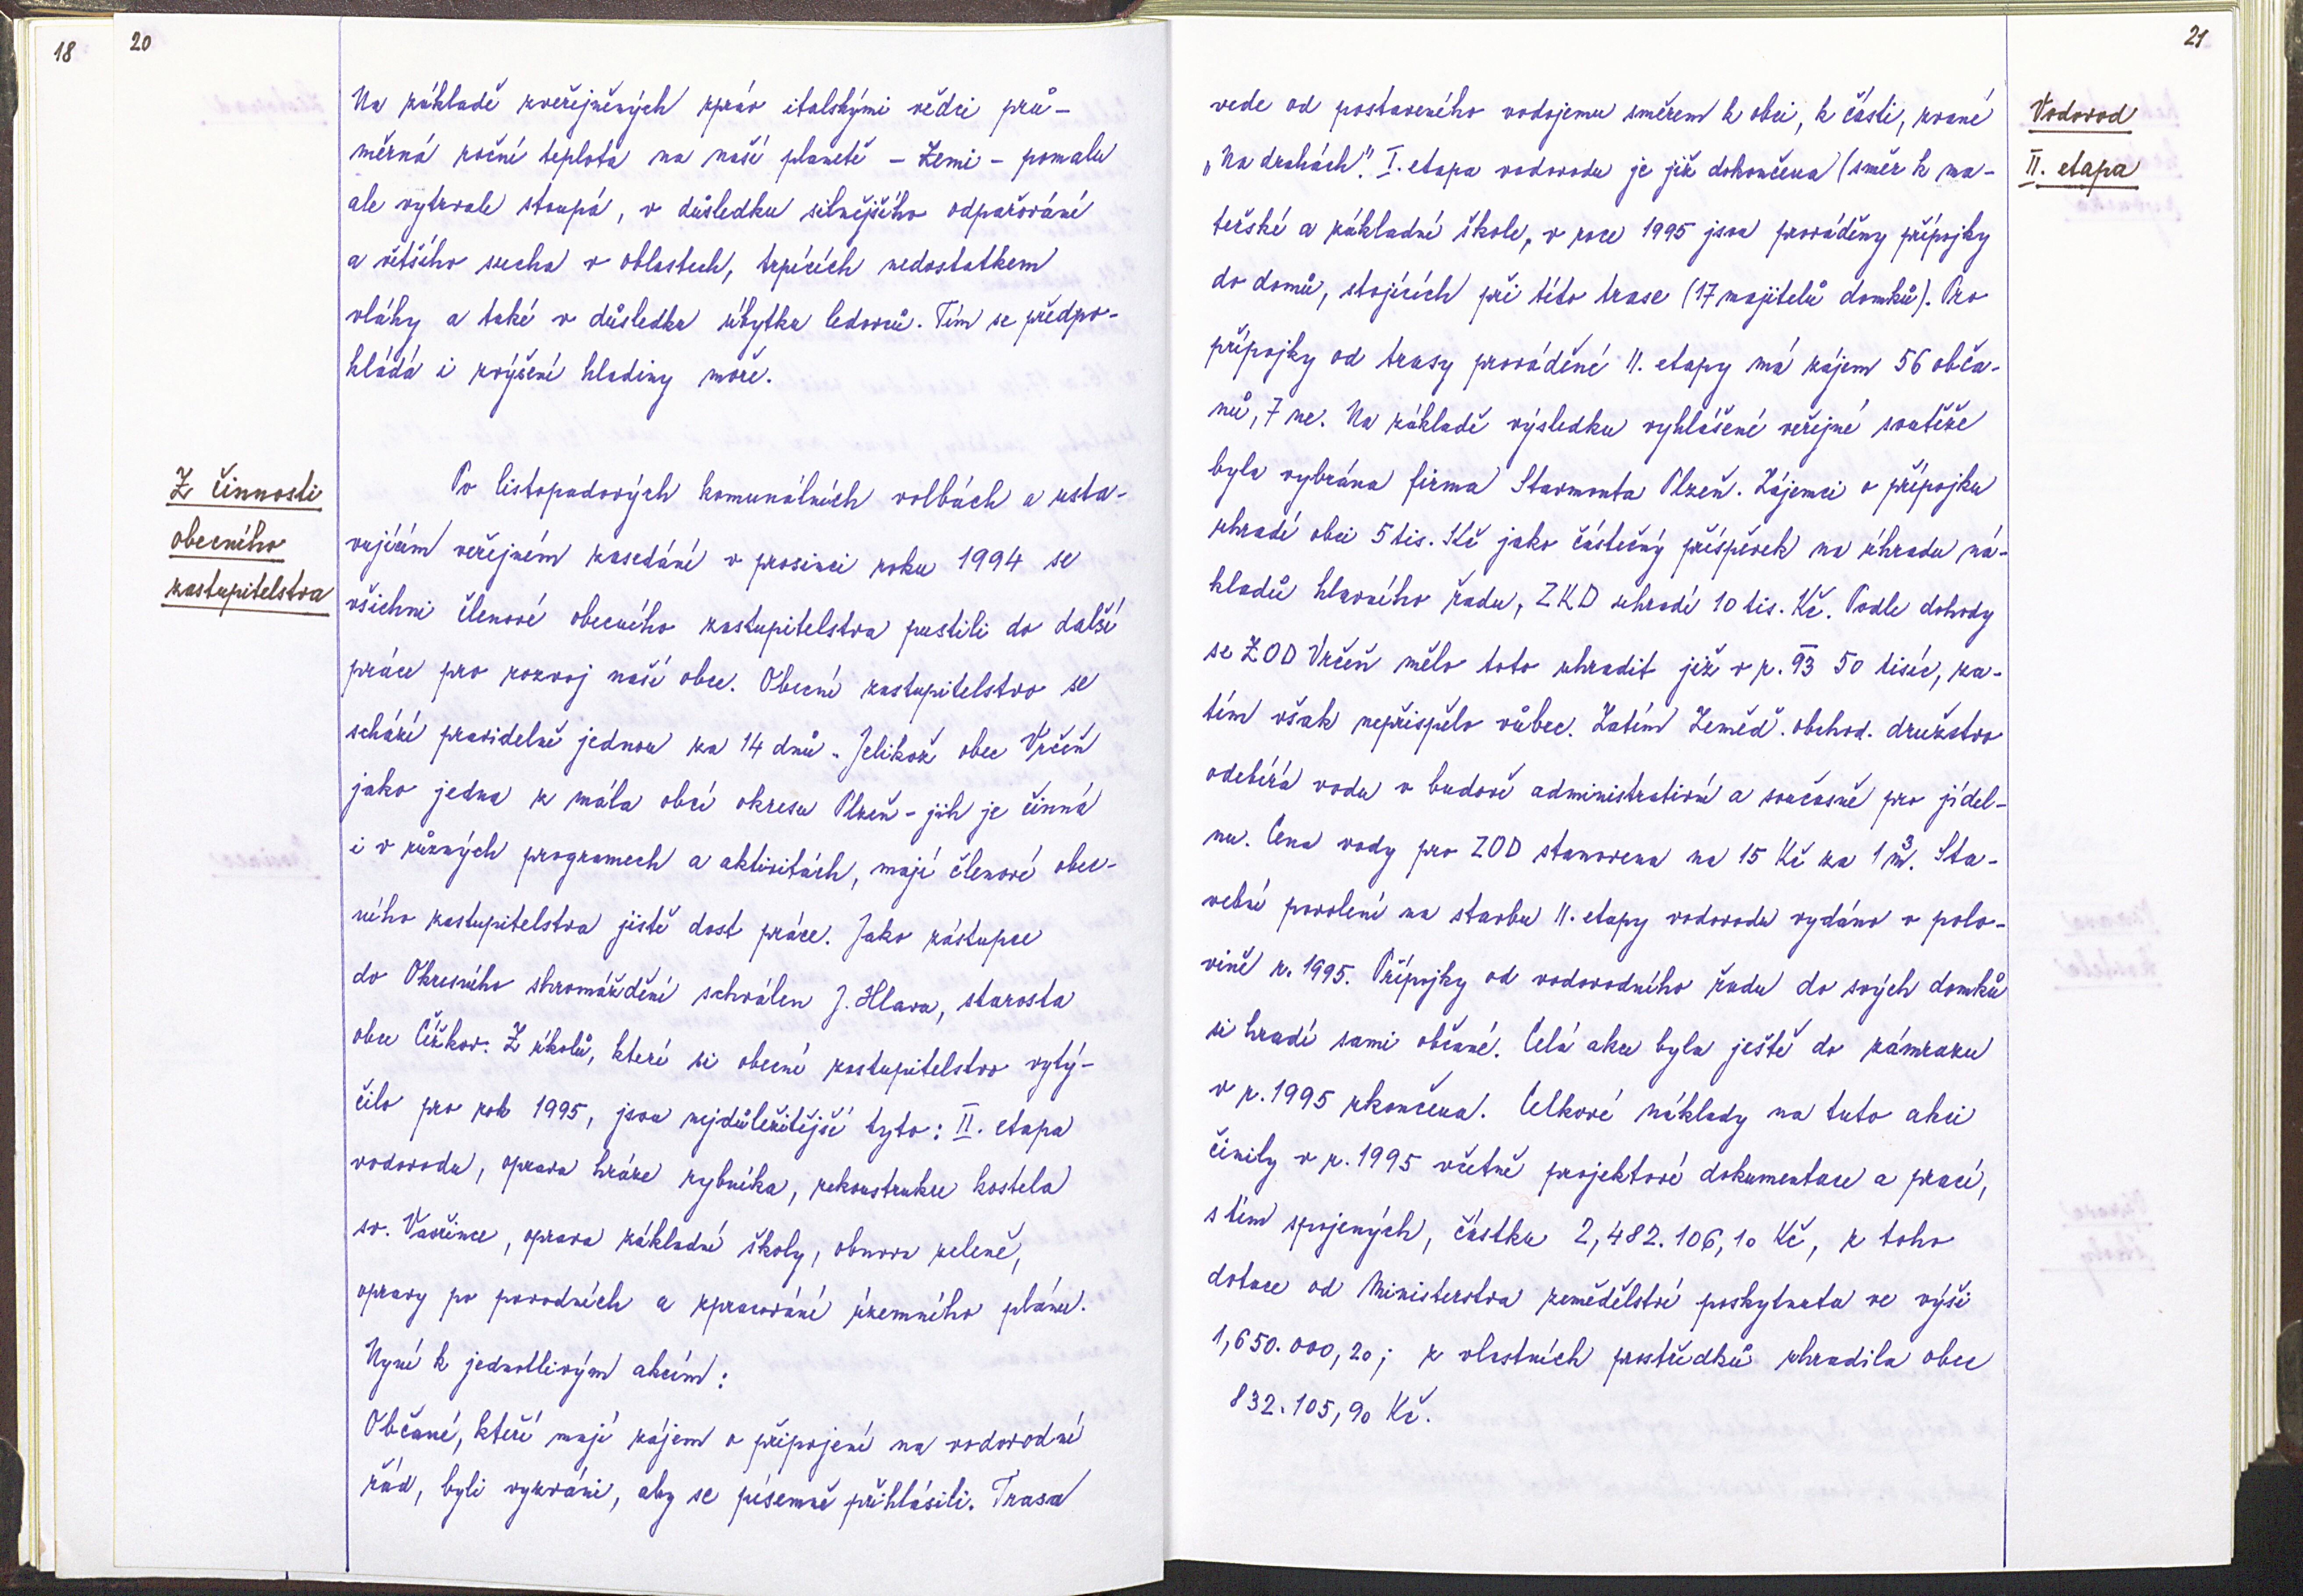 18
20
Na základě zveřejněných zpráv italskými vědci prů-
měrná roční teplota na naší planetě - Zemi - pomalu
ale vytrvale stoupá, v důsledku silnějšího odpařování
a většího sucha v oblastech, trpících nedostatkem
vláhy a také v důsledku úbytku ledovců. Tím se předpo-
kládá i zvýšení hladiny moře.
Z činnosti
obecního
zastupitelstva
Po listopadových komunálních volbách a usta-
vujícím veřejném zasedání v prosinci roku 1994 se
všichni členové obecního zastupitelstva pustili do další
práce pro rozvoj naší obce. Obecní zastupitelstvo se
schází pravidelně jednou za 14 dnů. Jelikož obec Vrčeň
jako jedna z mála obcí okresu Plzeň - jih je činná
i v různých programech a aktivitách, mají členové obec-
ního zastupitelstva jistě dost práce. Jako zástupce
do Okresního shromáždění schválen J. Hlava, starosta
obce Čížkov. Z úkolů, které si obecní zastupitelstvo vytý-
čilo pro rok 1995, jsou nejdůležitější tyto: II. etapa
vodovodu, oprava hráze rybníka, rekonstrukce kostela
sv. Vavřince, oprava základní školy, obnova zeleně,
opravy po povodních a zpracování územního plánu.
Nyní k jednotlivým akcím:
Občané, kteří mají zájem o připojení na vodovodní
řád, byli vyzváni, aby se písemně přihlásili. Trasa
21
Vodovod
II. etapa
vede od postaveného vodojemu směrem k obci, k části, zvané
„Na drahách". I. etapa vodovodu je již dokončena (směr k ma-
teřské a základní škole, v roce 1995 jsou prováděny přípojky
do domů, stojících při této trase (17 majitelů domků). Pro
přípojky od trasy prováděné II. etapy má zájem 56 obča-
nů, 7 ne. Na základě výsledku vyhlášené veřejné soutěže
byla vybrána firma Stavmonta Plzeň. Zájemci o přípojku
uhradí obci 5 tis. Kč jako částečný příspěvek na úhradu ná-
kladů hlavního řadu, ZKD uhradí 10 tis. Kč. Podle dohody
se ZOD Vrčeň mělo toto uhradit již v r. 93 50 tisíc, za-
tím však nepřispělo vůbec. Zatím Zeměď. obchod. družstvo
odebírá vodu v budově administrativní a současně pro jídel-
nu. Cena vody pro ZOD stanovena na 15 Kč za 1 m³. Sta-
vební povolení na stavbu II. etapy vodovodu vydáno v polo-
vině r. 1995. Přípojky od vodovodního řadu do svých domků
si hradí sami občané. Celá akce byla ještě do zámrazu
v r. 1995 ukončena. Celkové náklady na tuto akci
činily v r. 1995 včetně projektové dokumentace a prací,
s tím spojených, částku 2,482.106,10 Kč, z toho
dotace od Ministerstva zemědělství poskytnuta ve výši
1,650.000,20; z vlastních prostředků uhradila obec
832.105,90 Kč.